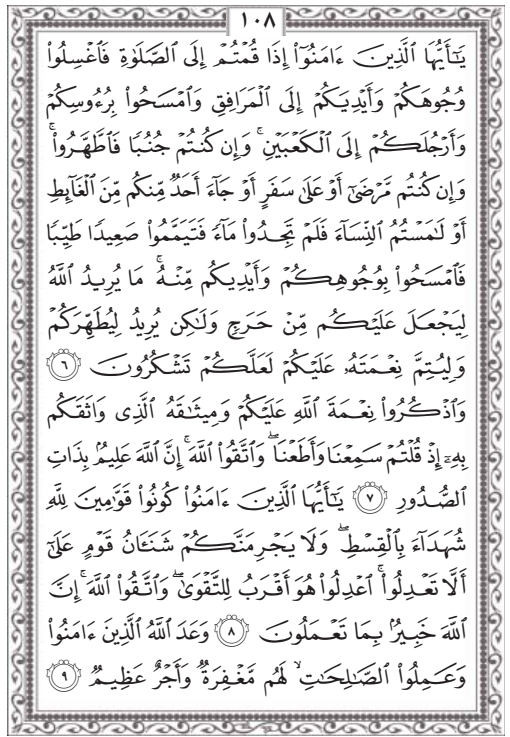 ١٠٨
يَـٰٓأَيُّهَا ٱلَّذِينَ ءَامَنُوٓا۟ إِذَا قُمْتُمْ إِلَى ٱلصَّلَوٰةِ فَٱغْسِلُوا۟
وُجُوهَكُمْ وَأَيْدِيَكُمْ إِلَى ٱلْمَرَافِقِ وَٱمْسَحُوا۟ بِرُءُوسِكُمْ
وَأَرْجُلَكُمْ إِلَى ٱلْكَعْبَيْنِ ۚ وَإِن كُنتُمْ جُنُبًا فَٱطَّهَّرُوا۟ ۚ
وَإِن كُنتُم مَّرْضَىٰٓ أَوْ عَلَىٰ سَفَرٍ أَوْ جَآءَ أَحَدٌ مِّنكُم مِّنَ ٱلْغَآئِطِ
أَوْ لَـٰمَسْتُمُ ٱلنِّسَآءَ فَلَمْ تَجِدُوا۟ مَآءً فَتَيَمَّمُوا۟ صَعِيدًا طَيِّبًا
فَٱمْسَحُوا۟ بِوُجُوهِكُمْ وَأَيْدِيكُم مِّنْهُ ۚ مَا يُرِيدُ ٱللَّهُ
لِيَجْعَلَ عَلَيْكُم مِّنْ حَرَجٍ وَلَـٰكِن يُرِيدُ لِيُطَهِّرَكُمْ
وَلِيُتِمَّ نِعْمَتَهُۥ عَلَيْكُمْ لَعَلَّكُمْ تَشْكُرُونَ ٦
وَٱذْكُرُوا۟ نِعْمَةَ ٱللَّهِ عَلَيْكُمْ وَمِيثَـٰقَهُ ٱلَّذِى وَاثَقَكُم
بِهِۦٓ إِذْ قُلْتُمْ سَمِعْنَا وَأَطَعْنَا ۖ وَٱتَّقُوا۟ ٱللَّهَ ۚ إِنَّ ٱللَّهَ عَلِيمٌۢ بِذَاتِ
ٱلصُّدُورِ ٧ يَـٰٓأَيُّهَا ٱلَّذِينَ ءَامَنُوا۟ كُونُوا۟ قَوَّٰمِينَ لِلَّهِ
شُهَدَآءَ بِٱلْقِسْطِ ۖ وَلَا يَجْرِمَنَّكُمْ شَنَـَٔانُ قَوْمٍ عَلَىٰٓ
أَلَّا تَعْدِلُوا۟ ۚ ٱعْدِلُوا۟ هُوَ أَقْرَبُ لِلتَّقْوَىٰ ۖ وَٱتَّقُوا۟ ٱللَّهَ ۚ إِنَّ
ٱللَّهَ خَبِيرٌۢ بِمَا تَعْمَلُونَ ٨ وَعَدَ ٱللَّهُ ٱلَّذِينَ ءَامَنُوا۟
وَعَمِلُوا۟ ٱلصَّـٰلِحَـٰتِ ۙ لَهُم مَّغْفِرَةٌ وَأَجْرٌ عَظِيمٌ ٩